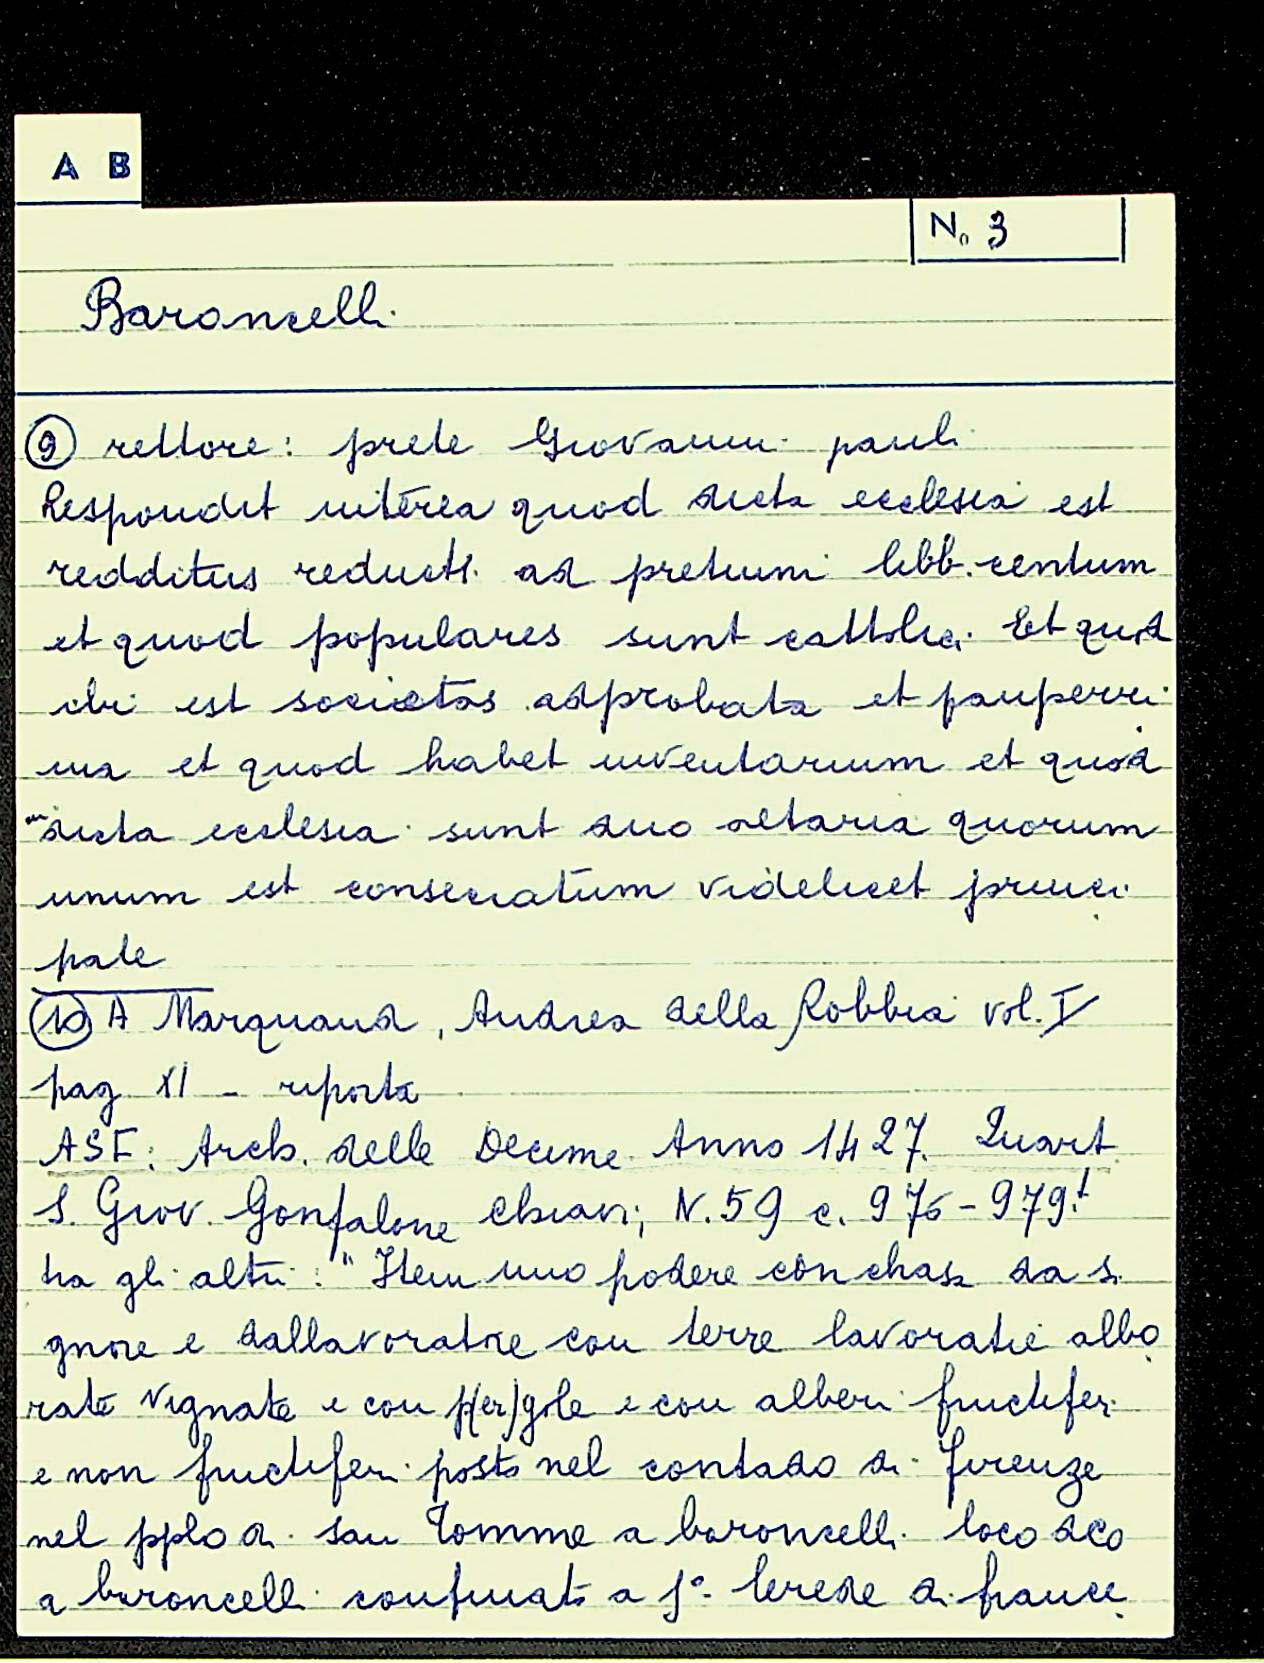 A B
N. 3
Baroncelli
9 rettore: prete Giovanni pauli
Respondit interea quod dicta ecclesia est
redditus reducti ad pretium libb. centum
et quod populares sunt cattolici. Et quod
ibi est societas adprobata et pauperri
ma et quod habet inventarium et quod
in dicta ecclesia sunt duo altaria quorum
unum est consecratum videlicet princi
pale
10 A Marquand, Andrea della Robbia vol. I
pag XI - riporta
ASF: Arch. delle Decime Anno 1427. Quart
S. Giov. Gonfalone Chiavi; N. 59 c. 976-979t
tra gli altri: "Item uno podere con chasa da si
gnore e dallavoratore con terre lavoratie albo
rate vignate e con p(er)gole e con alberi fructiferi
e non fructiferi posto nel contado di firenze
nel pplo di san Tomme a baroncelli loco dco
a baroncelli confinato a j° lerede di france